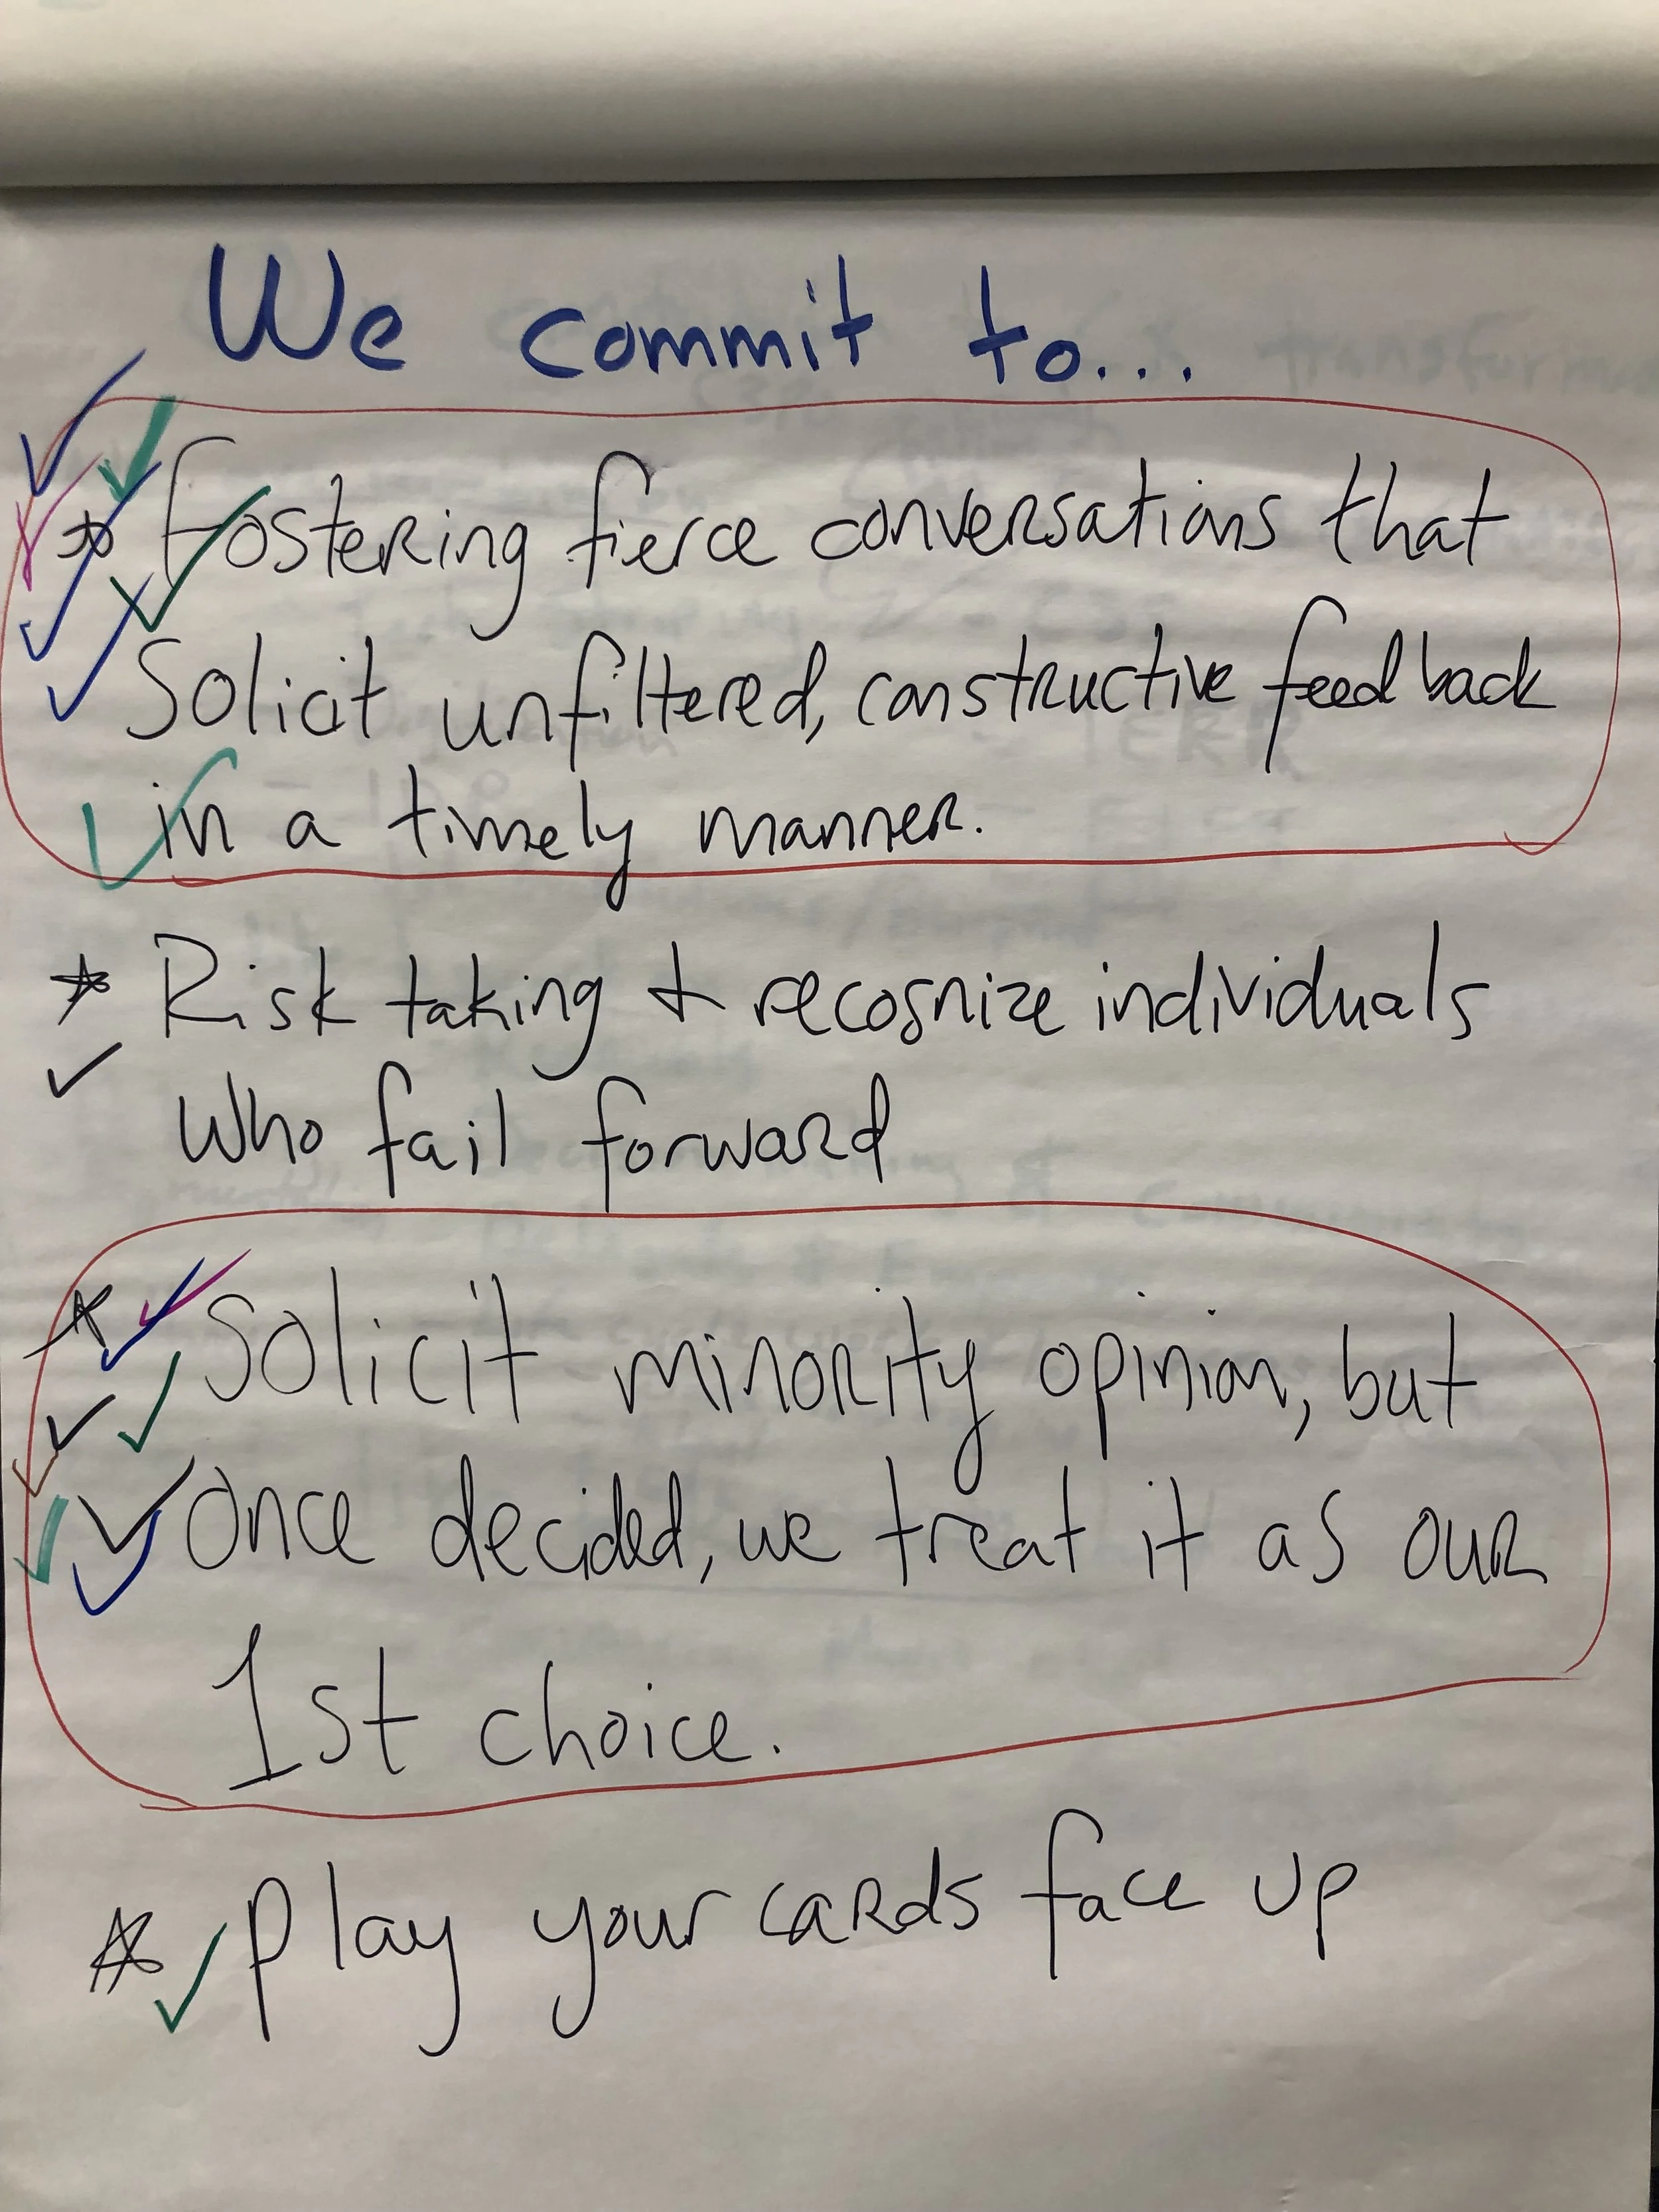 We commit to...
Fostering fierce conversations that
Solicit unfiltered, constructive feedback
in a timely manner.
Risk taking & recognize individuals
Who fail forward
Solicit minority opinion, but
Once decided, we treat it as our
1st choice.
Play your cards face up